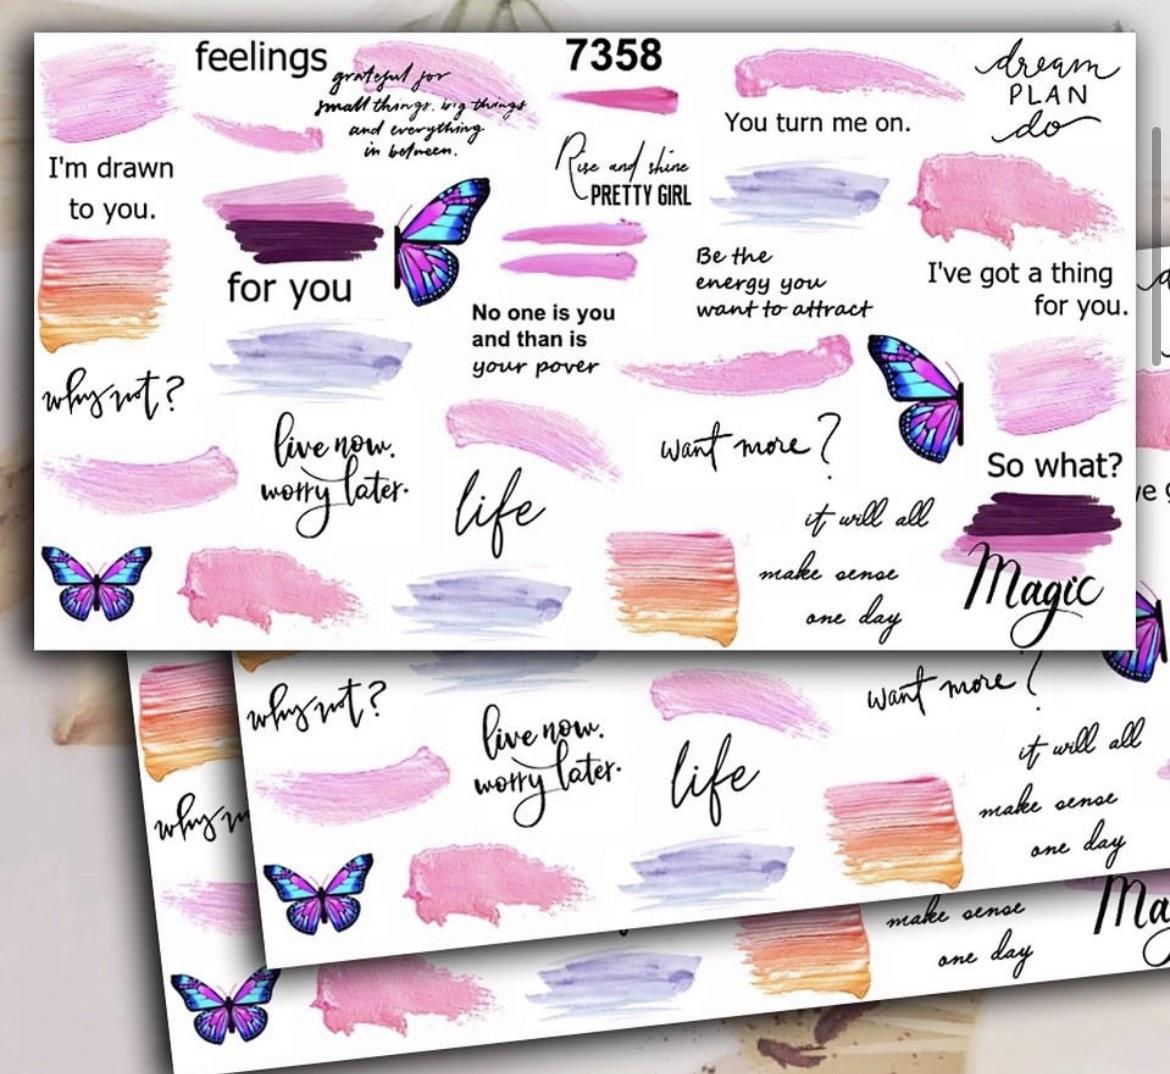 feelings
grateful for
small things. big things
and everything
in between.
7358
You turn me on.
dream
PLAN
do
I'm drawn
to you.
Rise and shine
PRETTY GIRL
for you
No one is you
and than is
your pover
Be the
energy you
want to attract
I've got a thing
for you.
why not?
live now.
worry later.
life
want more?
So what?
it will all
make sense
one day
Magic
why not?
live now.
worry later.
life
want more?
it will all
make sense
one day
make sense
one day